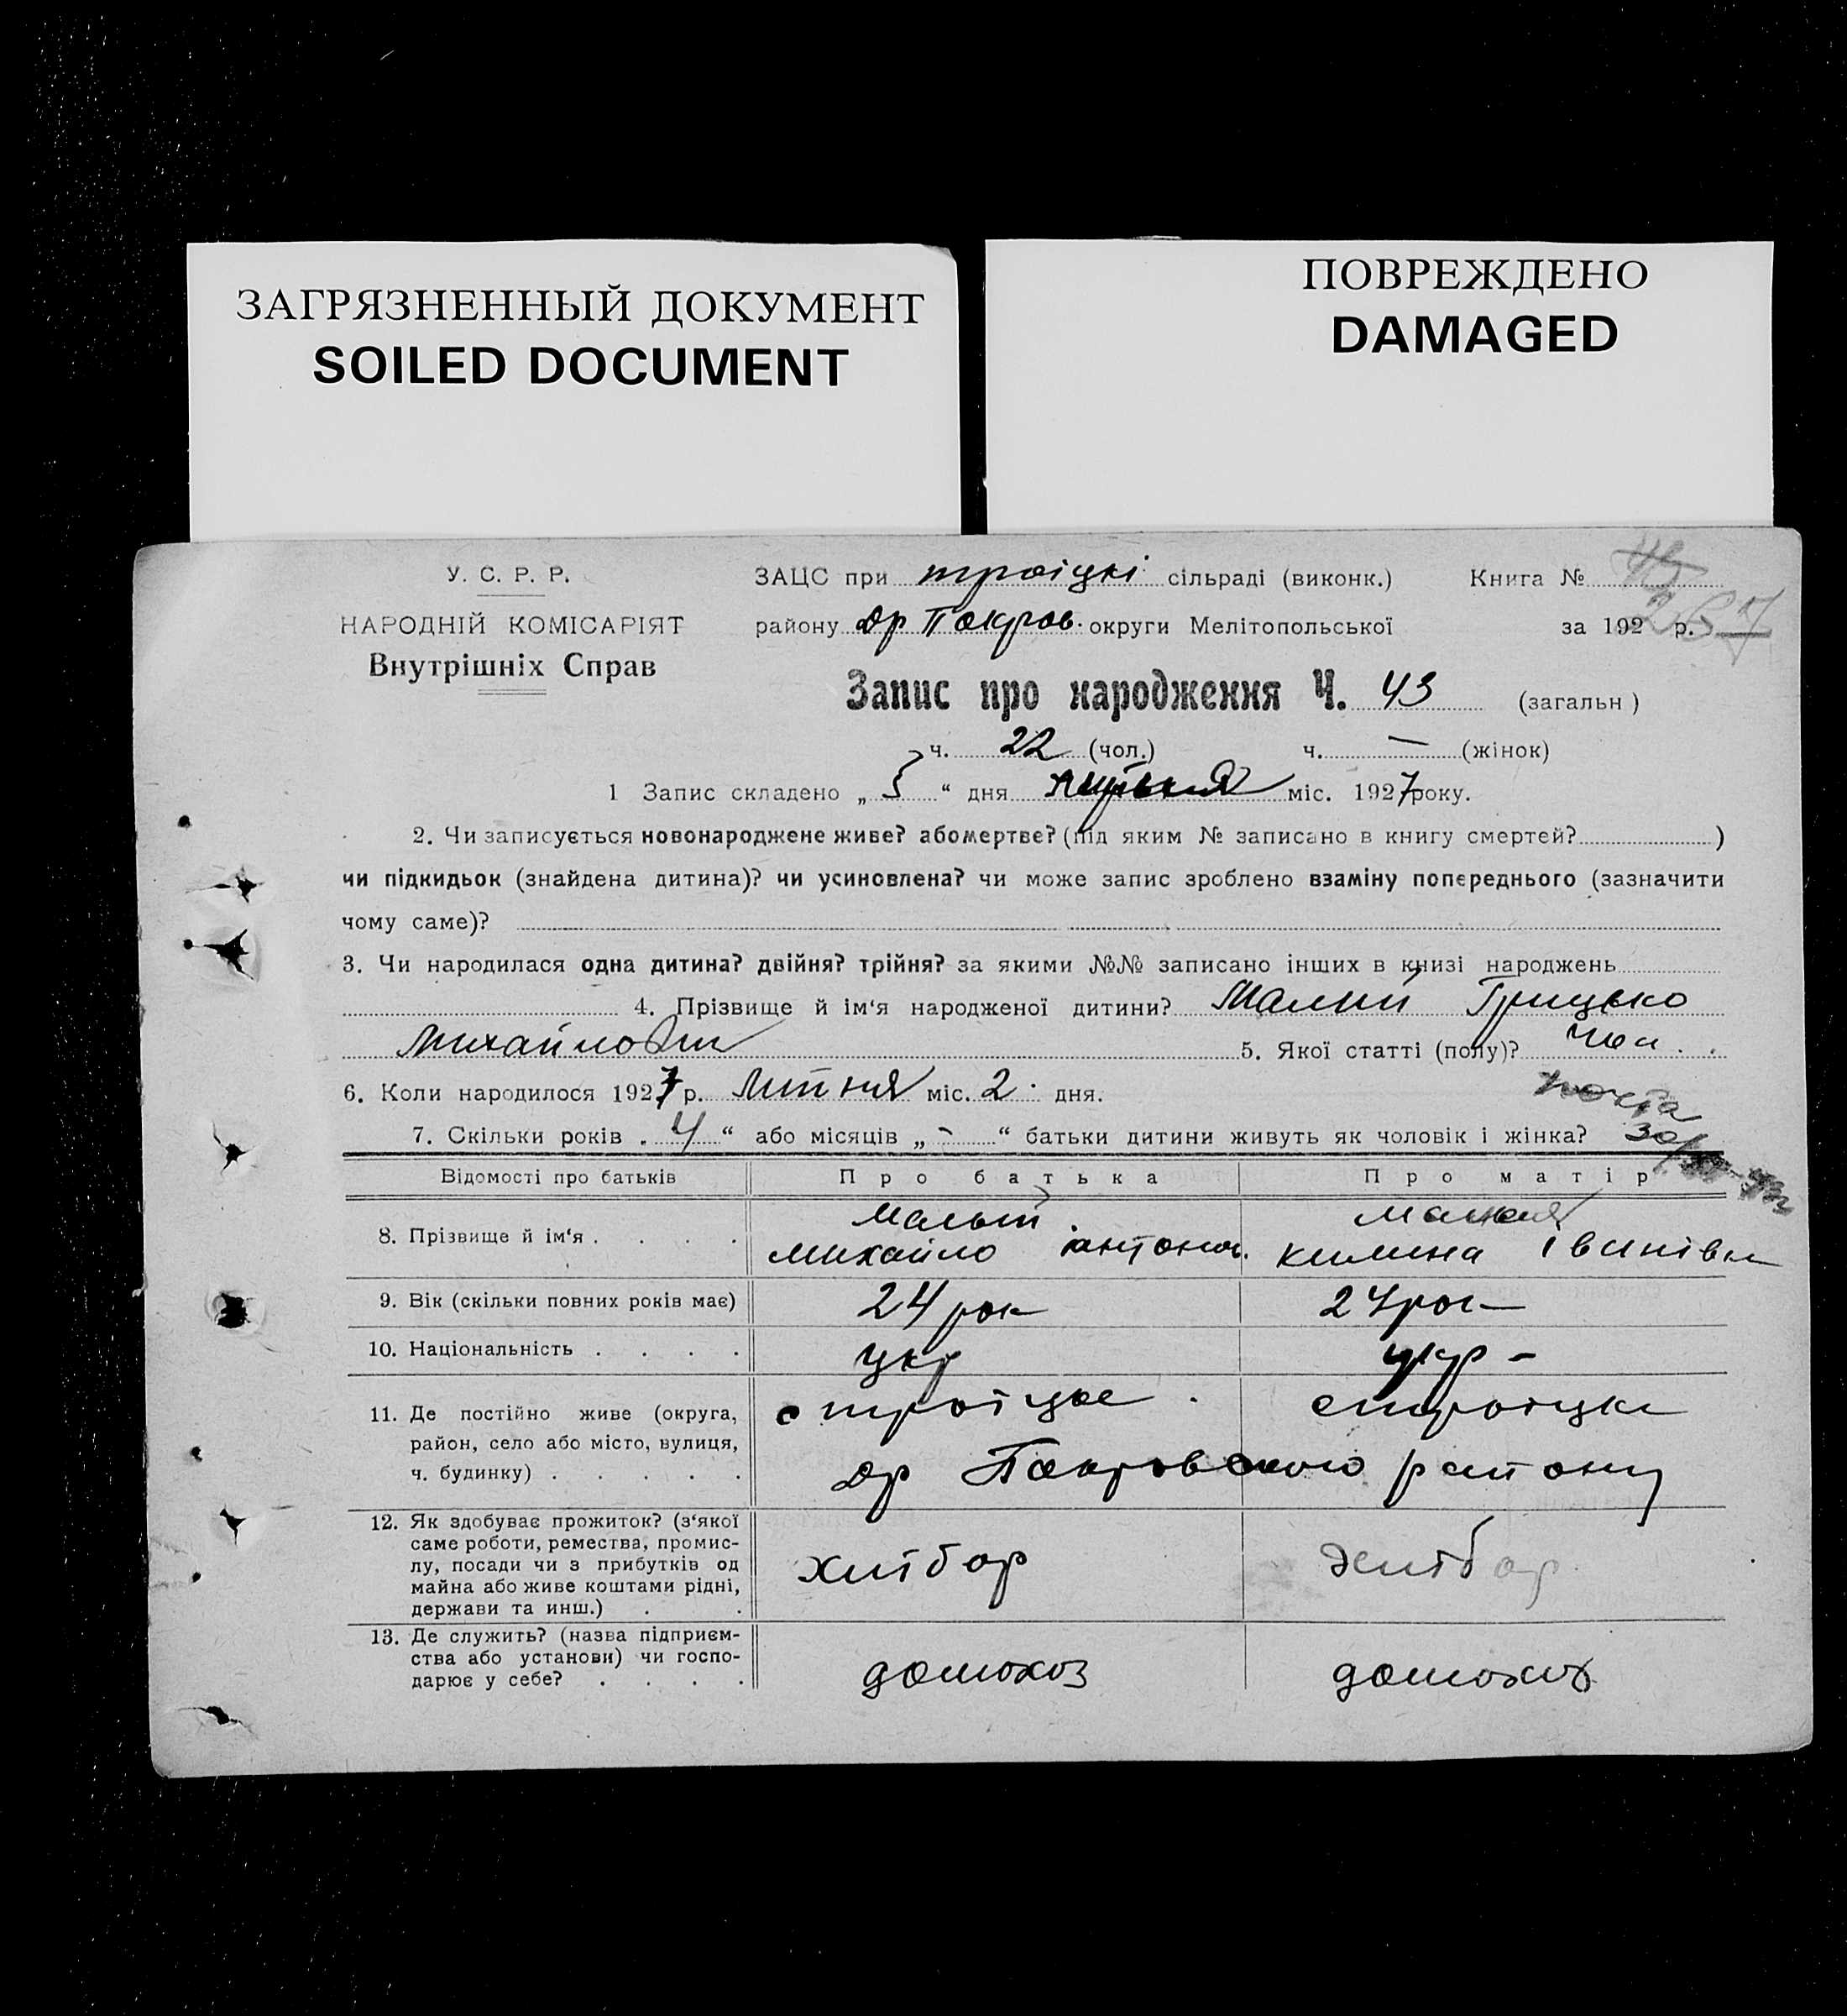 ЗАГРЯЗНЕННЫЙ ДОКУМЕНТ
SOILED DOCUMENT
ПОВРЕЖДЕНО
DAMAGED
У. С. Р. Р.
НАРОДНІЙ КОМІСАРІЯТ
Внутрішніх Справ
ЗАЦС при троіцкі сільраді (виконк.) Книга №
району Др Покров. округи Мелітопольської за 192 р.
Запис про народження Ч. 43 (загальн )
ч. 22 (чол.) ч. — (жінок)
1 Запис складено „ 5 “ дня міс. 1927 року.
2. Чи записується новонароджене живе? або мертве? (під яким № записано в книгу смертей? )
чи підкидьок (знайдена дитина)? чи усиновлена? чи може запис зроблено взаміну попереднього (зазначити
чому саме)?
3. Чи народилася одна дитина? двійня? трійня? за якими №№ записано інших в книзі народжень
4. Прізвище й ім‘я народженої дитини? Малий Грицько
Михайлович 5. Якої статті (полу)? Чол.
6. Коли народилося 1927 р. липня міс. 2 дня.
7. Скільки років „ 4 “ або місяців „ - “ батьки дитини живуть як чоловік і жінка?
Відомості про батьків Про батька Про матір
8. Прізвище й ім‘я . . . . Малий Михайло антонов. Малая килина Іванівн
9. Вік (скільки повних років має) 24 рок 24 рок
10. Національність . . . . укр укр -
11. Де постійно живе (округа, с троіцке . с троіцке
район, село або місто, вулиця,
ч. будинку) . . . . . Др Покровського району
12. Як здобуває прожиток? (з‘якої
саме роботи, ремества, промис-
лу, посади чи з прибутків од хлібор хлібор
майна або живе коштами рідні,
держави та инш.) . .
13. Де служить? (назва підприєм-
ства або установи) чи госпо- домохоз домохоз
дарює у себе? . . . .